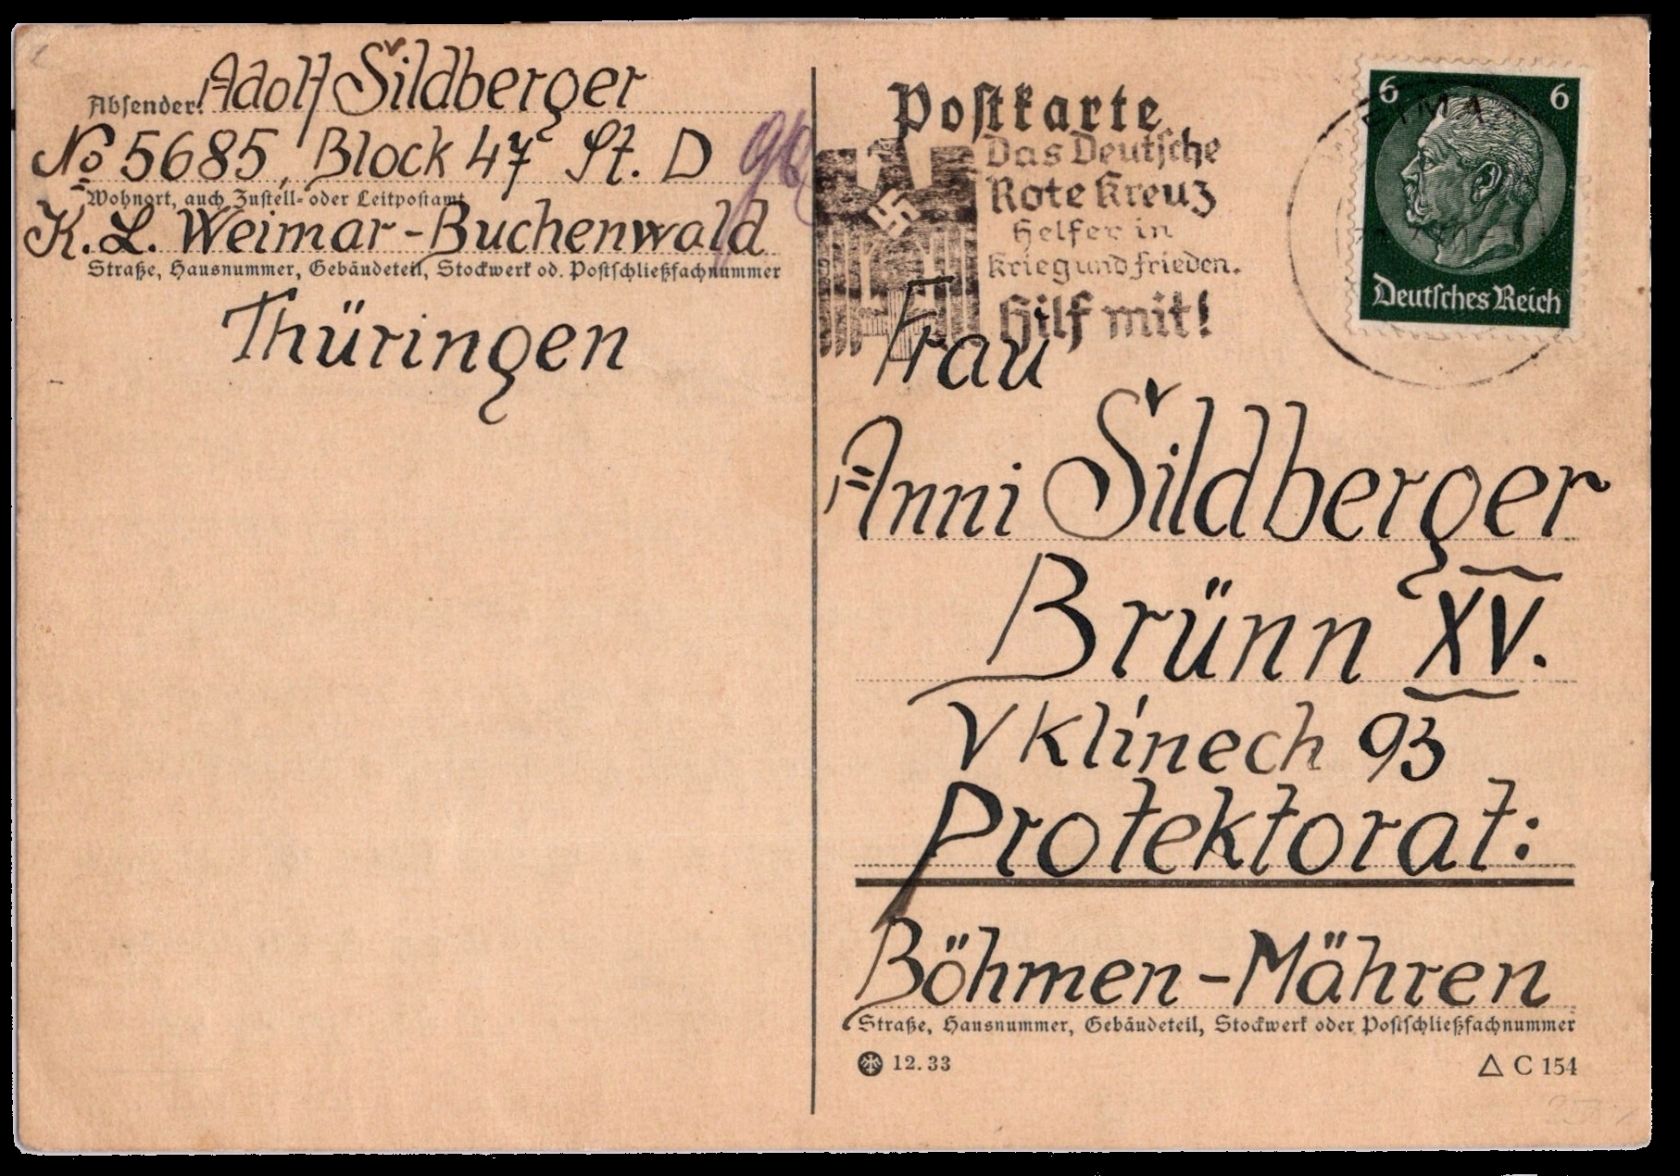 Absender: Adolf Šildberger
No 5685, Block 47 St. D
Wohnort, auch Zustell- oder Leitpostamt
K. L. Weimar-Buchenwald
Straße, Hausnummer, Gebäudeteil, Stockwerk od. Postschließfachnummer
Thüringen
Postkarte
Das Deutsche
Rote Kreuz
Helfer in
Krieg und Frieden.
Hilf mit!
6 6
Deutsches Reich
Frau
Anni Šildberger
Brünn XV.
V Klínech 93
Protektorat:
Böhmen-Mähren
Straße, Hausnummer, Gebäudeteil, Stockwerk oder Postschließfachnummer
12.33
C 154